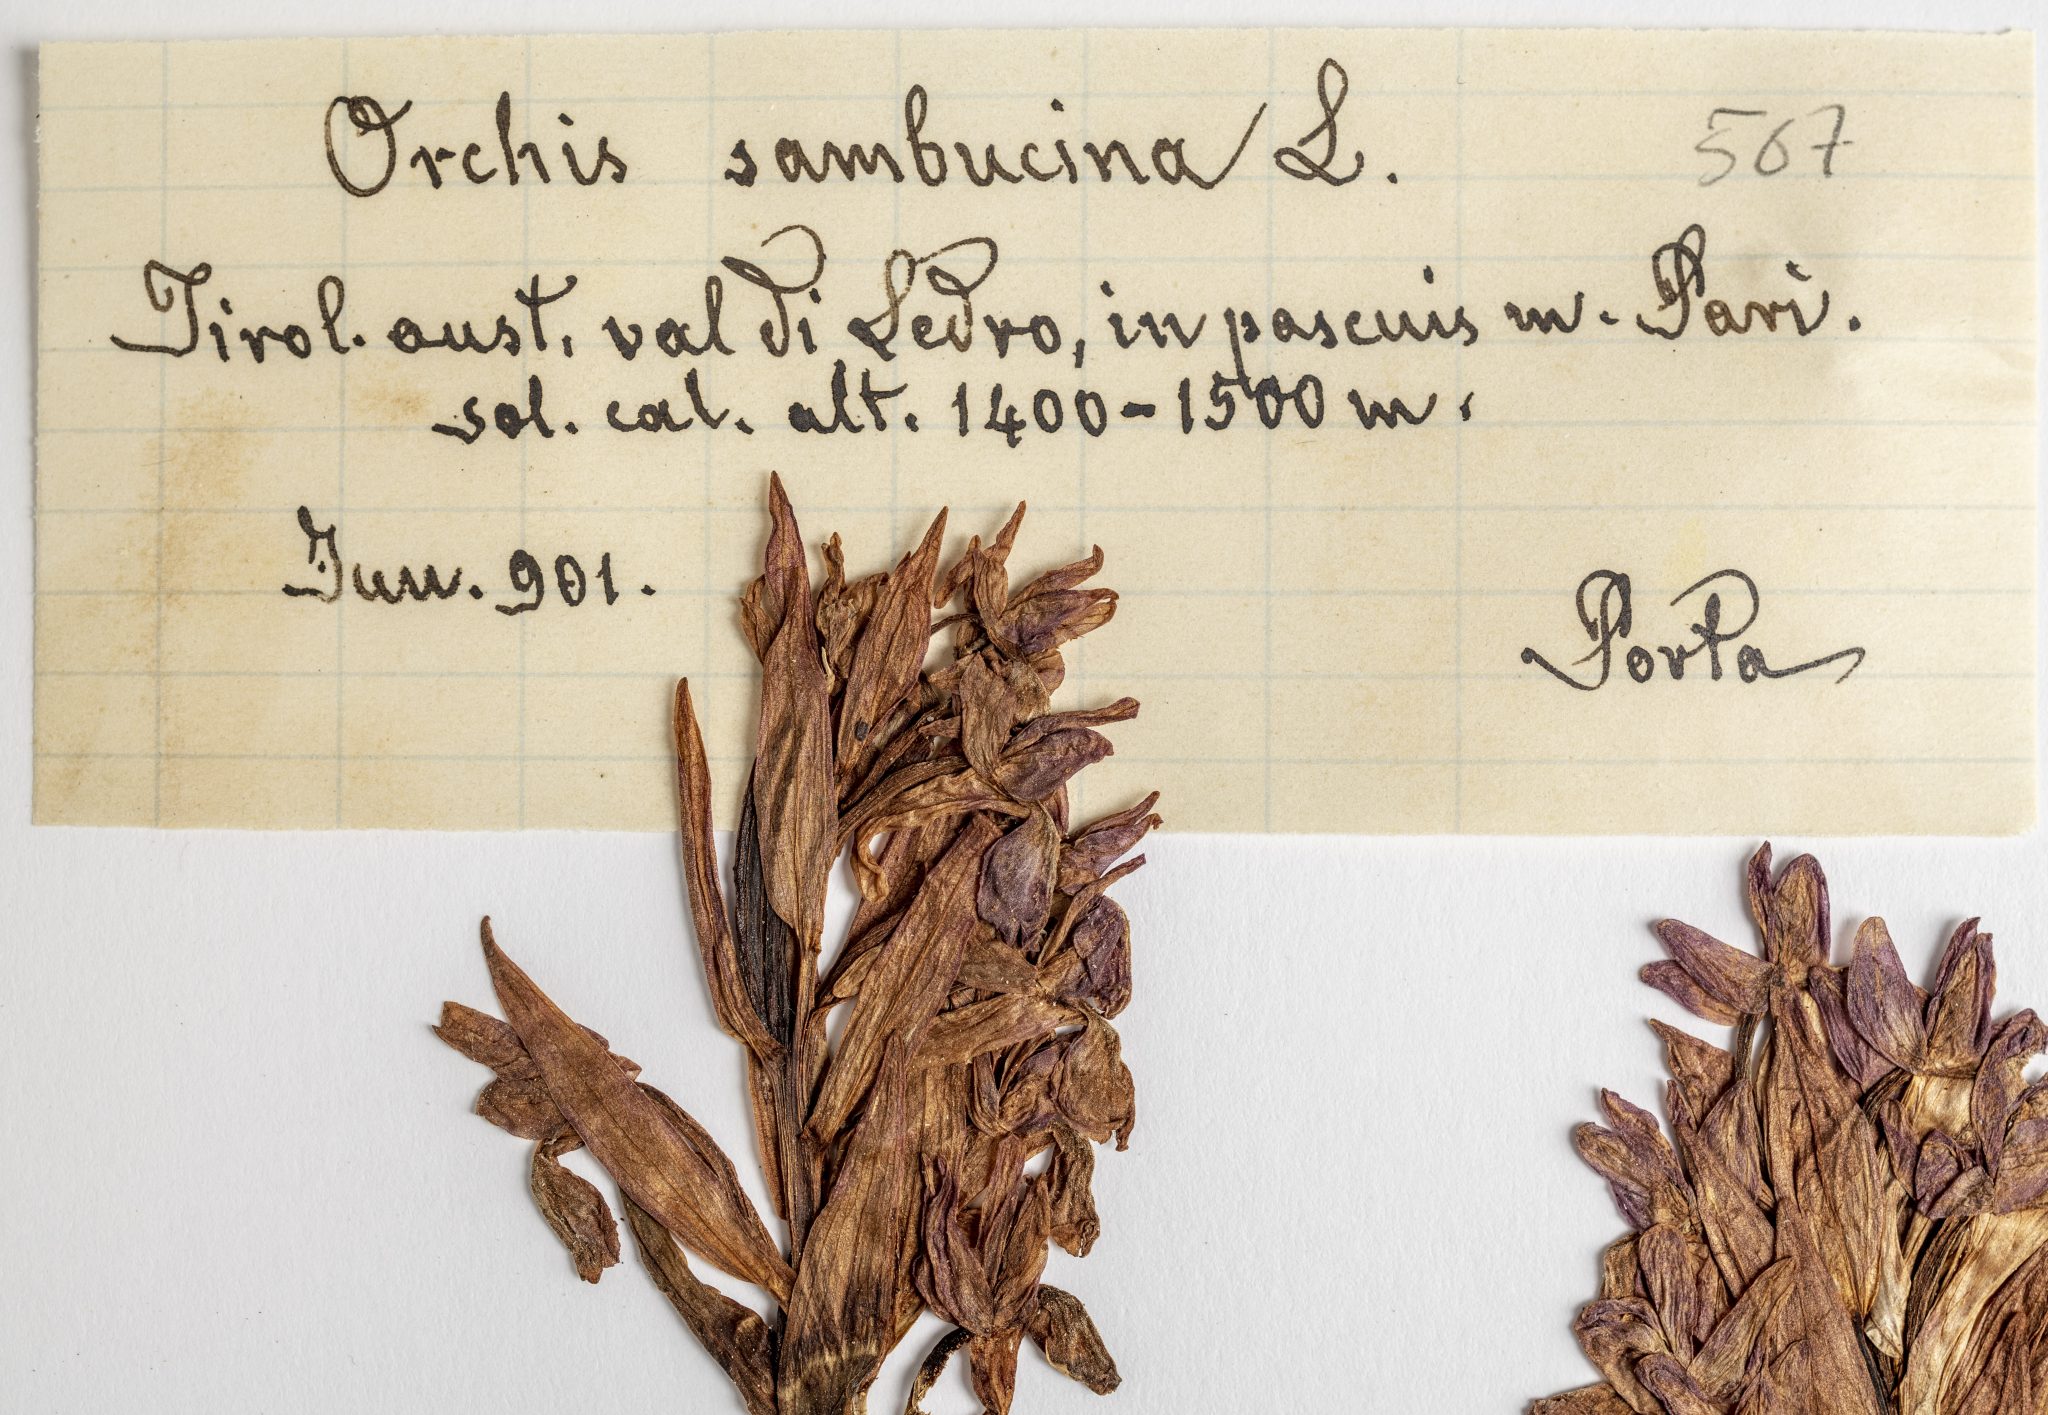 Orchis sambucina L.
567
Tirol. aust. val di Ledro, in pascuis m. Pari.
sol. cal. alt. 1400-1500 m.
Jun. 901.
Porta